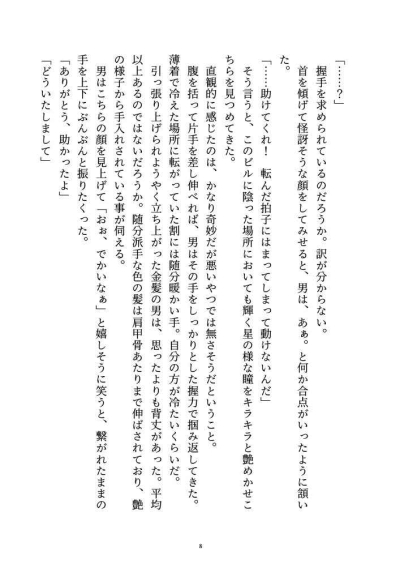 「……？」
　握手を求められているのだろうか。訳が分からない。
　首を傾げて怪訝そうな顔をしてみせると、男は、あぁ。と何か合点がいったように頷い
た。
「……助けてくれ！　転んだ拍子にはまってしまって動けないんだ」
　そう言うと、このビルに陰った場所においても輝く星の様な瞳をキラキラと艶めかせこ
ちらを見つめてきた。
　直観的に感じたのは、かなり奇妙だが悪いやつでは無さそうだということ。
　腹を括って片手を差し伸べれば、男はその手をしっかりとした握力で掴み返してきた。
薄着で冷えた場所に転がっていた割には随分暖かい手。自分の方が冷たいくらいだ。
　引っ張り上げられようやく立ち上がった金髪の男は、思ったよりも背丈があった。平均
以上あるのではないだろうか。随分派手な色の髪は肩甲骨あたりまで伸ばされており、艶
の様子から手入れされている事が伺える。
　男はこちらの顔を見上げて「おぉ、でかいなぁ」と嬉しそうに笑うと、繋がれたままの
手を上下にぶんぶんと振りたくった。
「ありがとう、助かったよ」
「どういたしまして」
8